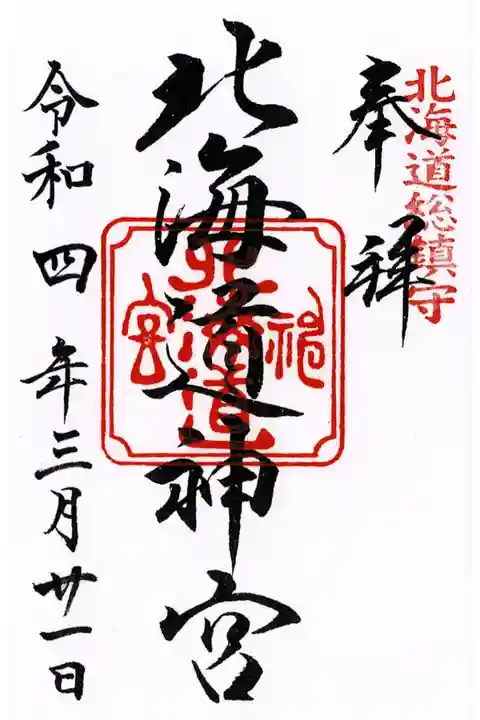 北海道総鎮守
奉拝
北海道神宮
北海道
神
宮
令和四年三月廿一日